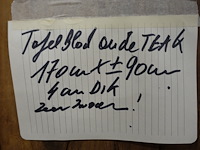 Tafelblad oude TEAK
170cm X ± 90cm
4 cm Dik
Zeer zwaar!